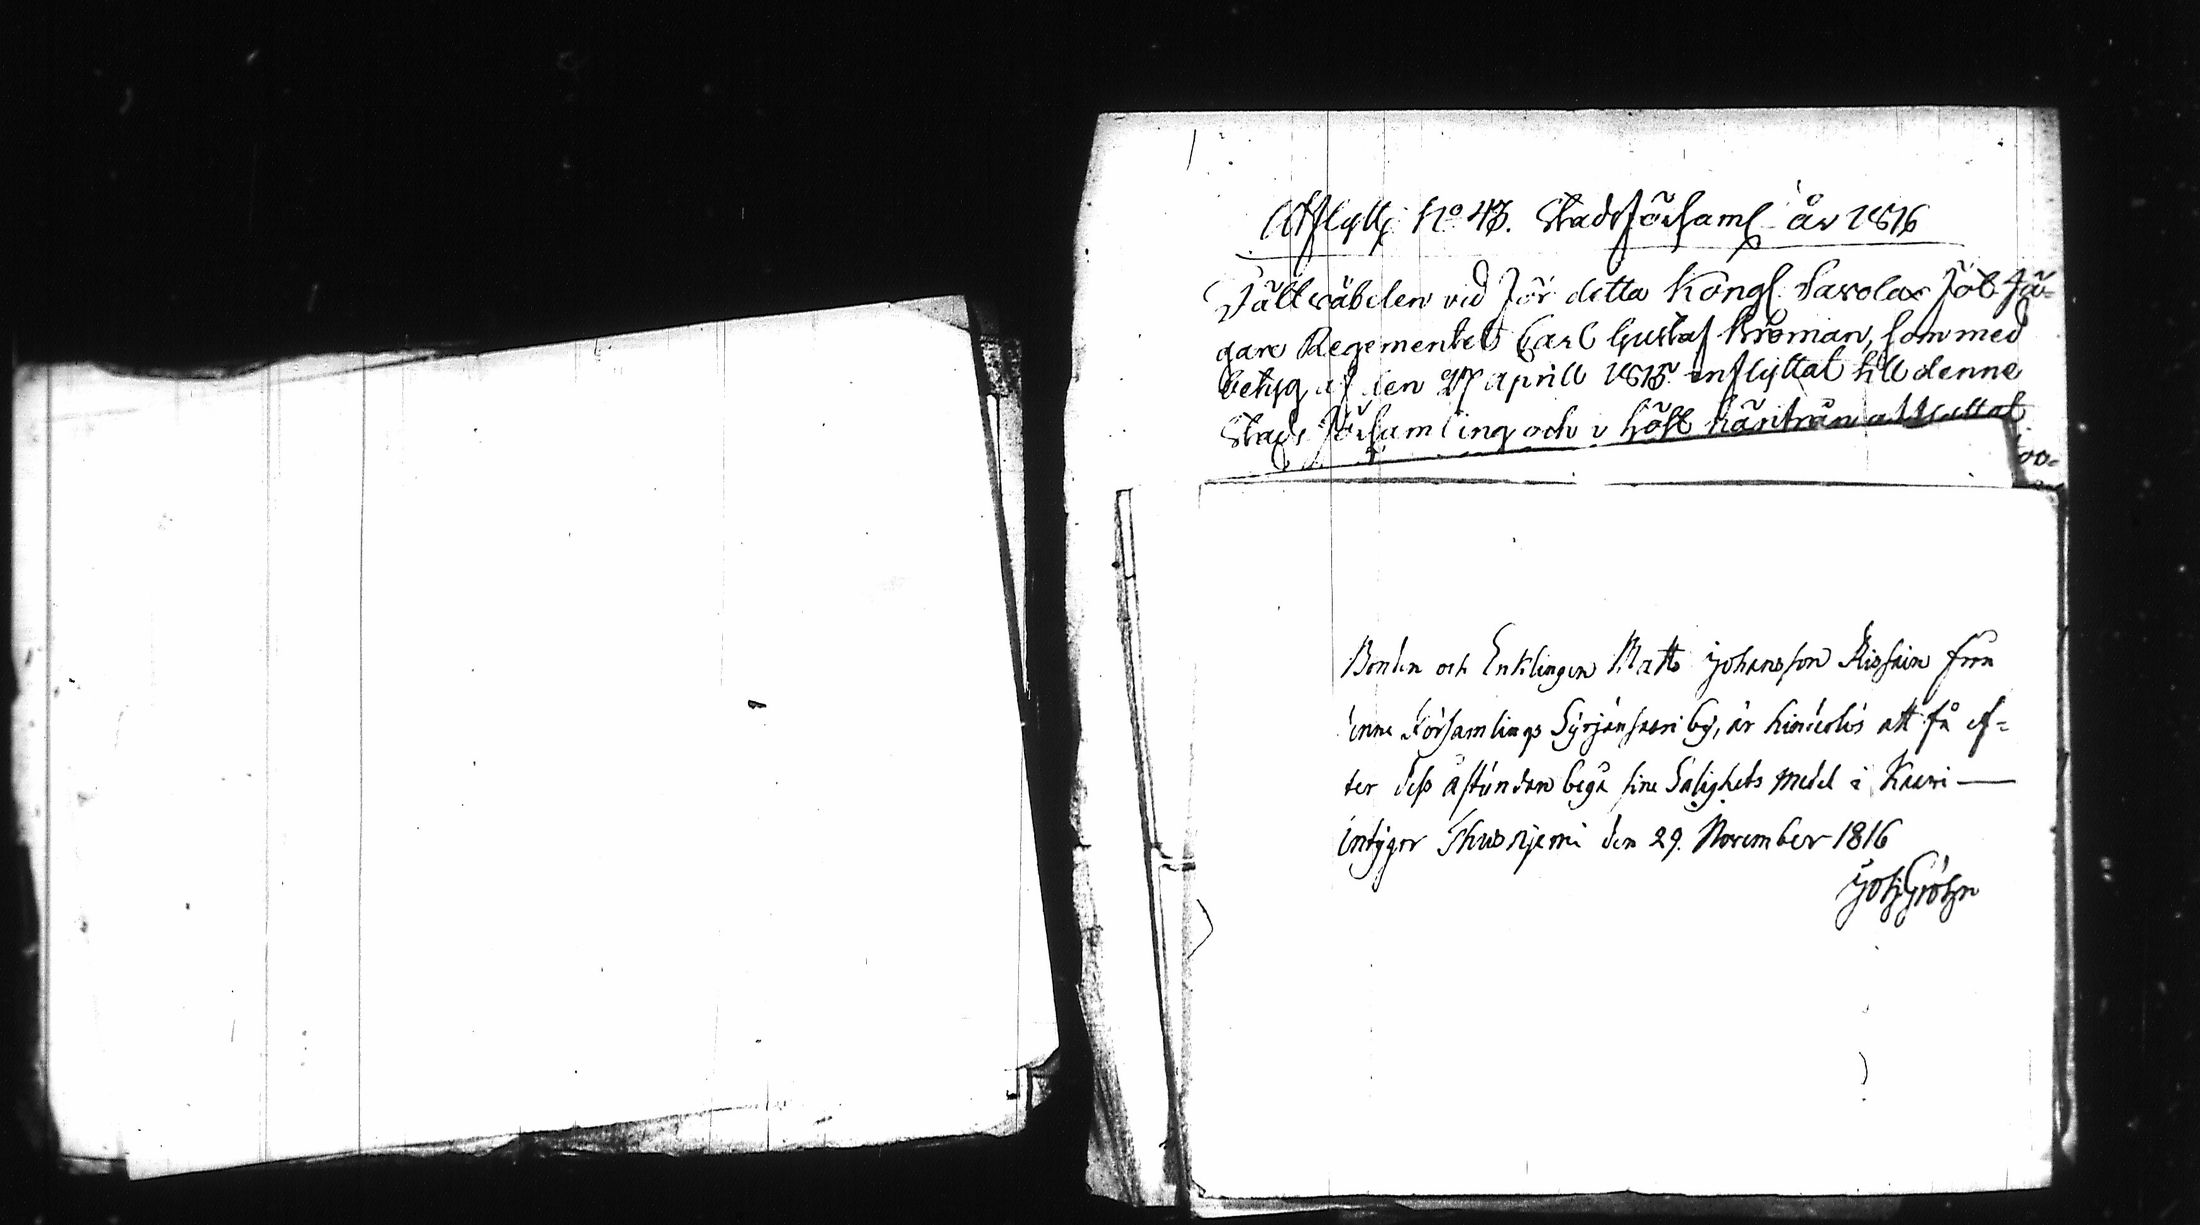 Utflyttj No 43. Stadsförsaml år 1816
Fältwäbelen wid för detta Kongl. Savolax Fot Jä-
gare Regementet Carl Gustaf Kroman, som med
betyg af den 27 April 1815 inflyttat till denne
Stads Församling och i höst härifrån afflyttat
Bonden och Enklingen Matts Johansson från
denne Församlings Syrjänsaari by, är att få ef-
ter dess åstundan begå sine Salighets medel i Kaavi —
intygar den 29. November 1816
Joh Gröhn